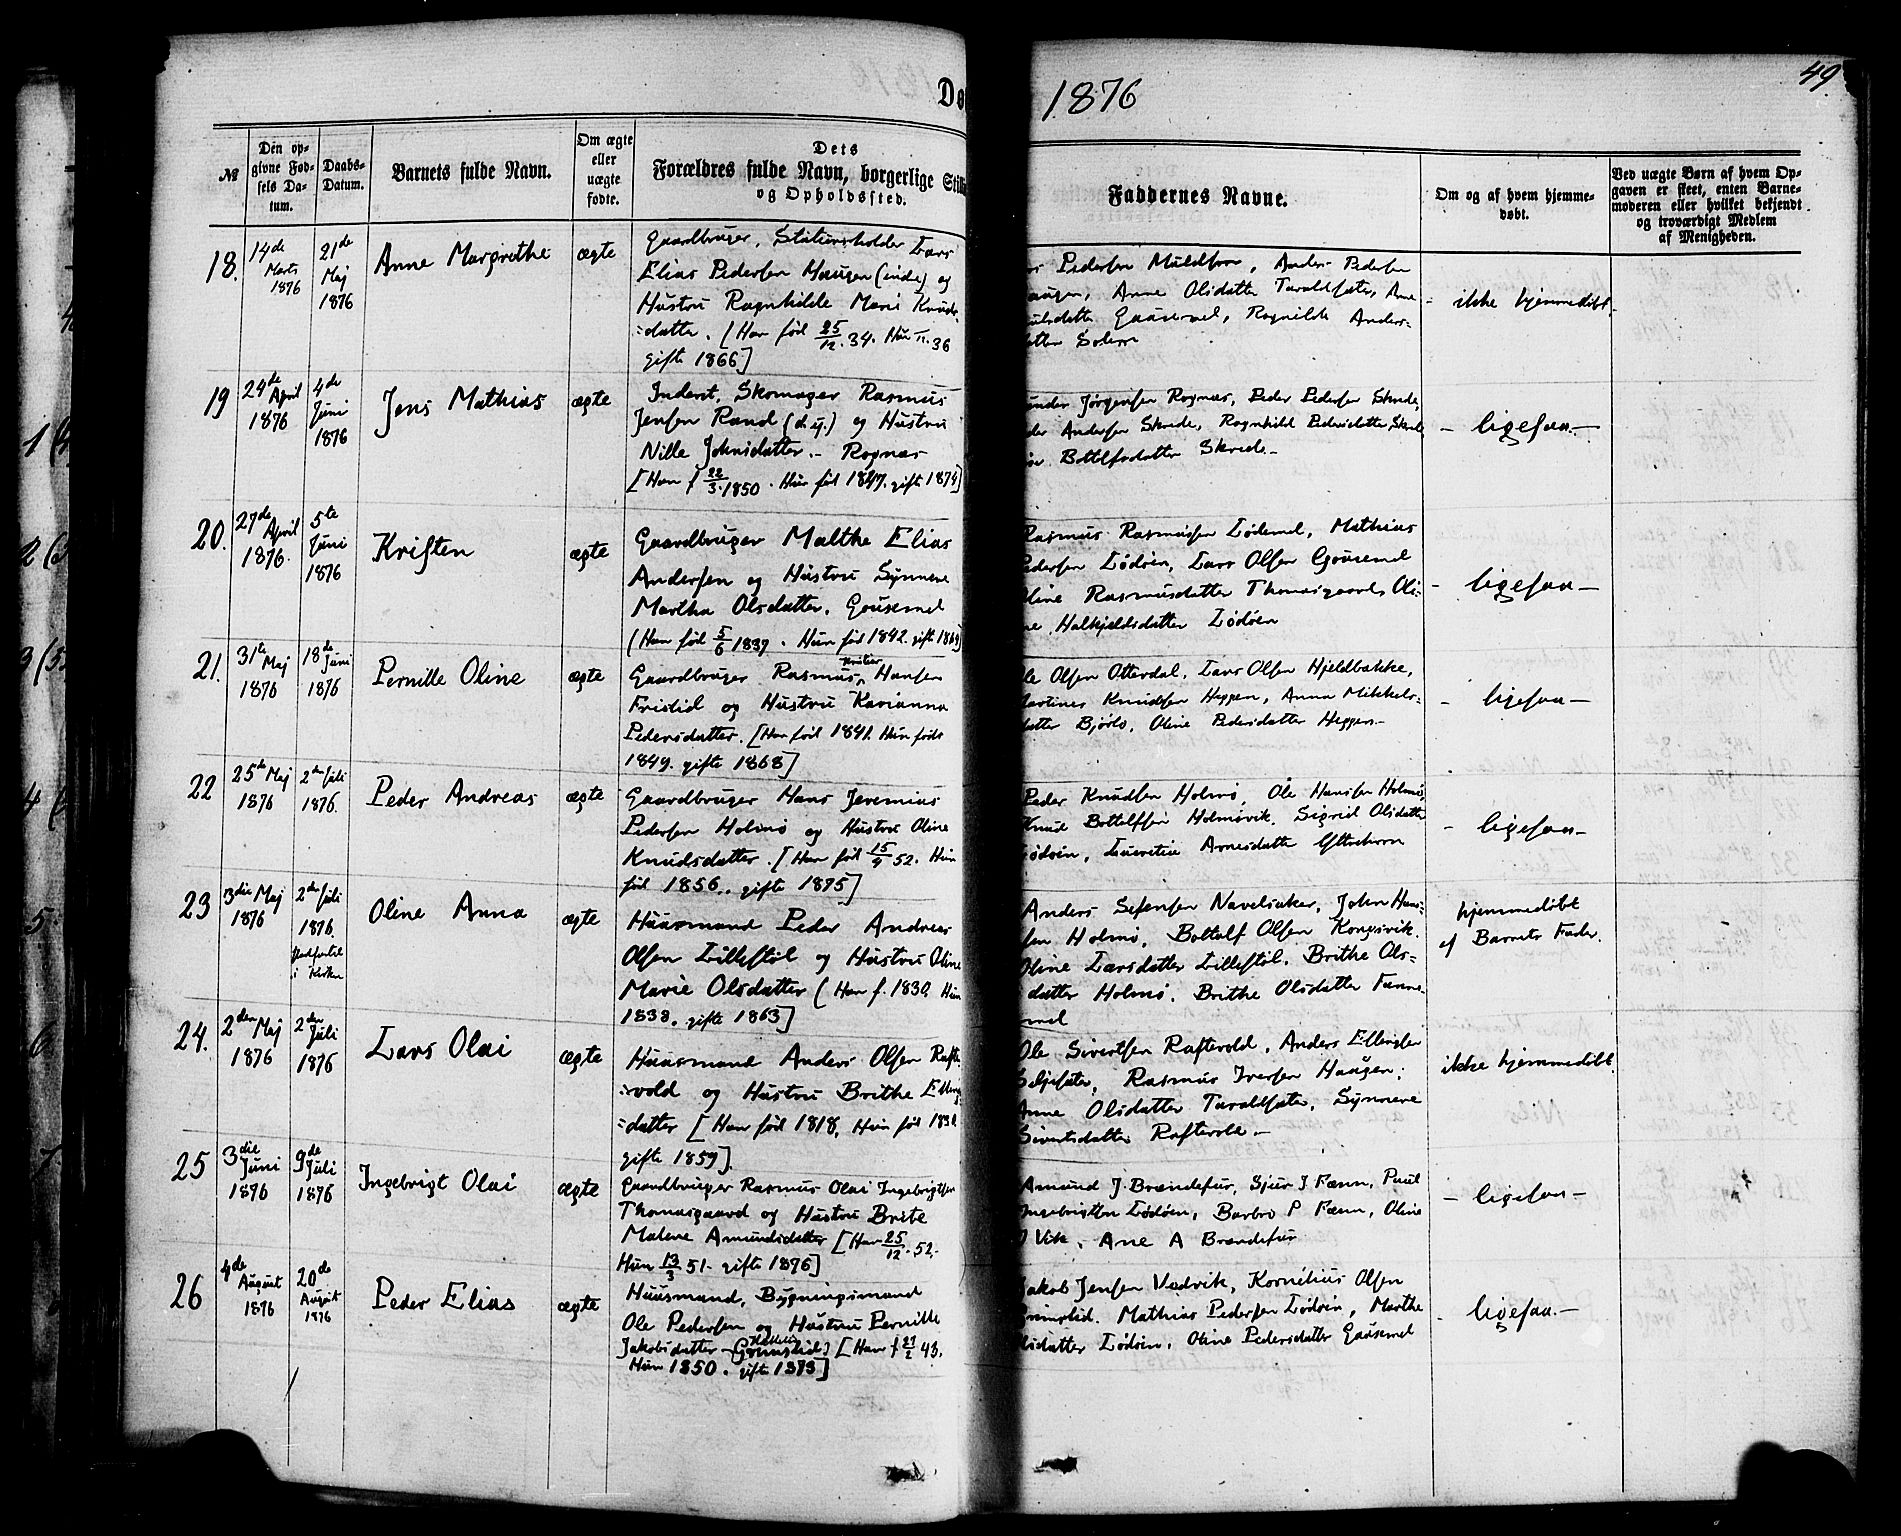 Dø
1876
49
№
Den op-
givne Fød-
sels Da-
tum.
Daabs-
Datum.
Barnets fulde Navn.
Om ægte
eller
uægte
fødte.
Dets
Forældres fulde Navn, borgerlige Stilli
og Opholdssted.
Faddernes Navne.
Om og af hvem hjemme-
døbt.
Ved uægte Børn af hvem Op-
gaven er skeet, enten Barne-
moderen eller hvilket bekjendt
og troværdigt Medlem
af Menigheden.
18.
14de
Marts
1876
21de
Maj
1876
Anne Margrethe
ægte
Gaardbruger, Stationsholder Lars
Elias Pedersen Haugen (inde) og
Hustru Ragnhilde Marie Knuds-
datter. [Han fød 25/12.34. Hun 36
gifte 1866]
Pedersen Muldsvor, Anders Pedersen
augen, Anne Olsdatter Taraldsæter, Anne
datter Gausemel, Ragnilde Anders-
atter Solem
ikke hjemmedøbt.
19
24de April
1876
4de
Juni
1876
Jens Mathias
ægte
Inderst, Skomager Rasmus
Jensen Rand og Hustru
Nille Johnsdatter. - Rognæs
[Han f 22/3.1850. Hun fød 1847. gifte 1874]
Jørgensen Rognæs, Peder Pedersen Skrede,
der Andersen Skrede, Ragnhild Pedersdatter Skrede
Bottolfsdatter Skrede.-
- ligesaa.-
20.
27de April
1876.
5te
Juni
1876
Kristen
ægte
Gaardbruger Malthe Elias
Andersen og Hustru Synneve
Martha Olsdatter, Gausemel
(Han fød 5/6 1837. Hun fød 1842. gift 1869]
Rasmus Rasmussen Lødemel, Mathias
Pedersen Lødøen, Lars Olsen Gausemel
Oline Rasmusdatter Thomasgaard, Oli-
ne Halkjeldsdatter Lødøen
- ligesaa-
21.
31te Maj
1876
18de Juni
1876
Pernille Oline
ægte
Gaardbruger Rasmus Hansen
Fristid og Hustru Karianna
Pedersdatter. [Han fød 1841. Hun føds
1849. gifte 1868]
Ole Olsen Otterdal, Lars Olsen Hjeldbakke,
Martines Knudsen Heggen, Anna Mikkels-
datter Bjørlo, Oline Pedersdatter Heggen-
- ligesaa-
22
25de Maj
1876
2den Juli
1876.
Peder Andreas
ægte
Gaardbruger Hans Jeremias
Pedersen Holmø og Hustru Oline
Knudsdatter. [Han fød 15/9 52. Hun
fød 1856.. gifte 1875]
Peder Knudsen Holmø, Ole Hansen Holmø,
Knud Bottolfsen Holmøvik, Sigrid Olsdatter
Lødøen, Lucretie Arnesdatter Yttrehorn
- ligesaa-
23
13die Maj
1876
2den Juli
1876.
i Kirken
Oline Anna
ægte
Huusmand Peder Andreas
Olsen Lillestøl og Hustru Oline
Marie Olsdatter (Han f. 1830. Hun
1838. gifte 1863]
Anders Sefensen Navelsaker, John Han-
sen Holmø, Bottolf Olsen Kongsvik.
Oline Larsdatter Lillestøl, Brithe Ols-
datter Holmø. Brithe Olsdatter Fanne-
mel
hjemmedøbt
af Barnets Fader.
24.
2den Maj
1876
2den
Juli
1876
Lars Olai
ægte
Huusmand Anders Olsen Rafte
vold og Hustru Brithe Elling
datter [Han fød 1818, Hun fød 1830.
gifte 1859].
Ole Sivertsen Raftevold, Anders Ellingsen
Seljesæter, Rasmus Iversen Haugen;
Anne Olsdatter Taraldsæter, Synneve
Sivertsdatter Raftevold-
ikke hjemmedøbt.
25
3die
Juni
1876
9de
Juli
1876
Ingebrigt Olai
ægte
Gaardbruger Rasmus Olai Ingebrigtsen
Thomasgaard og Hustru Brite
Malene Amundsdatter [Han 25/12.52.
Hun 13/3 51. gifte 1876]
Amund J. Brændefur, Sjur J Fænn, Paul
Ingebrigtsen Lødøen, Barbro P Fænn, Oline
Vik, Ane A Brændefur
- ligesaa-
26
4de
August
1876
20de
August
1876
Peder Elias
ægte
Huusmand, Bygningsmand
Ole Pedersen og Hustru Pernille
Jakobsdatter [Han f 27/2 43.
Hun 1850. gifte 1873]
Jakob Jensen Vedvik, Kornelius Olsen
Grimstid. Mathias Pedersen Lødøen, Marthe
lsdatter Lødøen, Oline Pedersdatter Gausemel
- ligesaa.-